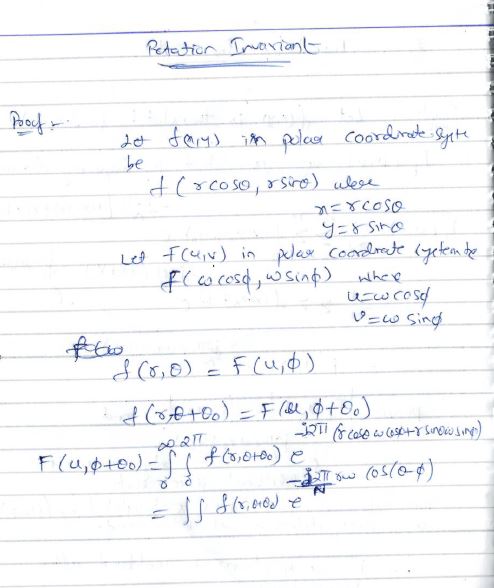 Rotation Invariant
Proof :-
Let f(x,y) in polar coordinate syste
be
f(rcosθ, rsinθ) where
x=rcosθ
y=r sinθ
Let F(u,v) in polar coordinate system be
F(ωcosφ, ωsinφ) where
u=ωcosφ
v=ω sinφ
f(r,θ) = F(u,φ)
f(r,θ+θ₀) = F(u, φ+θ₀)
F(u,φ+θ₀) = ∫₀^∞ ∫₀^2π f(r,θ+θ₀) e^-j2π(rcosθ ωcosφ+r sinθ ω sinφ)
= ∫∫ f(r,θ+θ₀) e^-j2π/N rω cos(θ-φ)